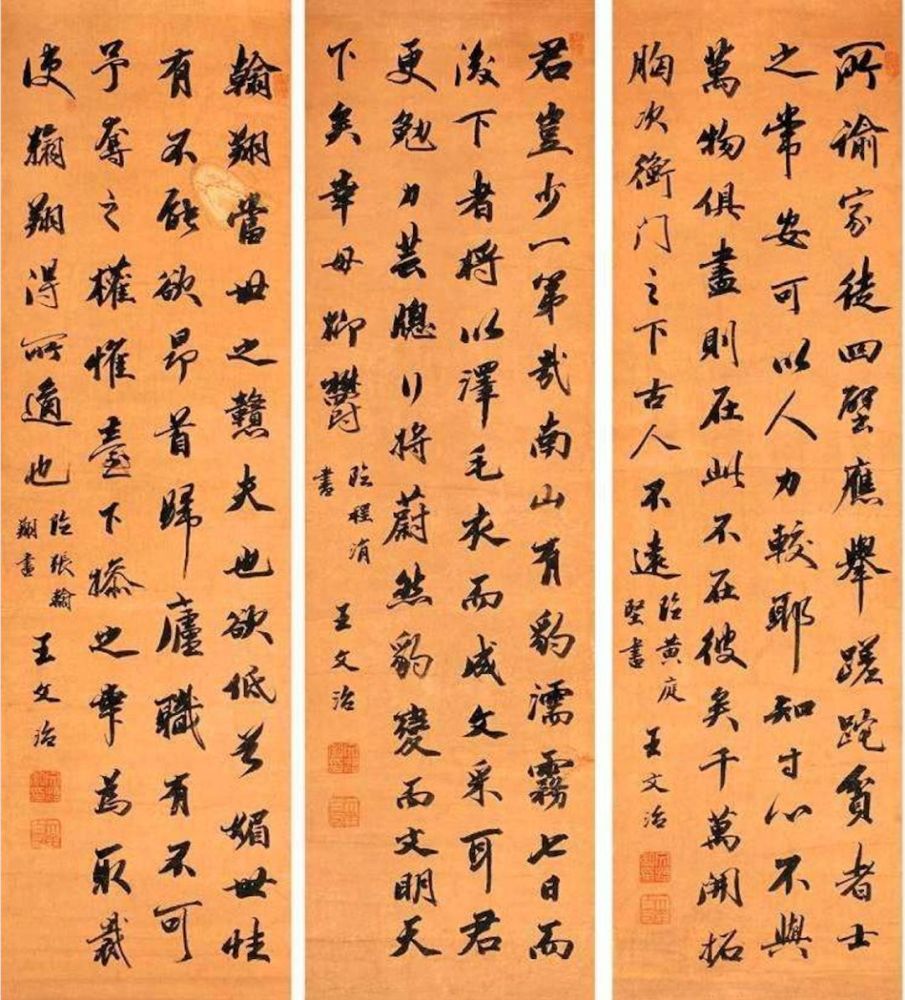 所諭家徒四壁應舉蹉跎貧者士
之常安可以人力較耶知寸心不與
萬物俱盡則在此不在彼矣千萬開拓
胸次衡門之下古人不遠
臨黃庭
堅書
王文治
君豈少一第哉南山有豹濡霧七日而
後下者將以澤毛衣而成文采耳君
更勉力芸牕行將蔚然豹變而文明天
下矣幸毋抑鬱
臨程涓
書
王文治
翰翔當世之戇夫也欲低首媚世性
有不能欲昂首歸廬職有不可
予奪之權惟臺下操之幸爲取裁
使翰翔得所適也
臨張翰
翔書
王文治